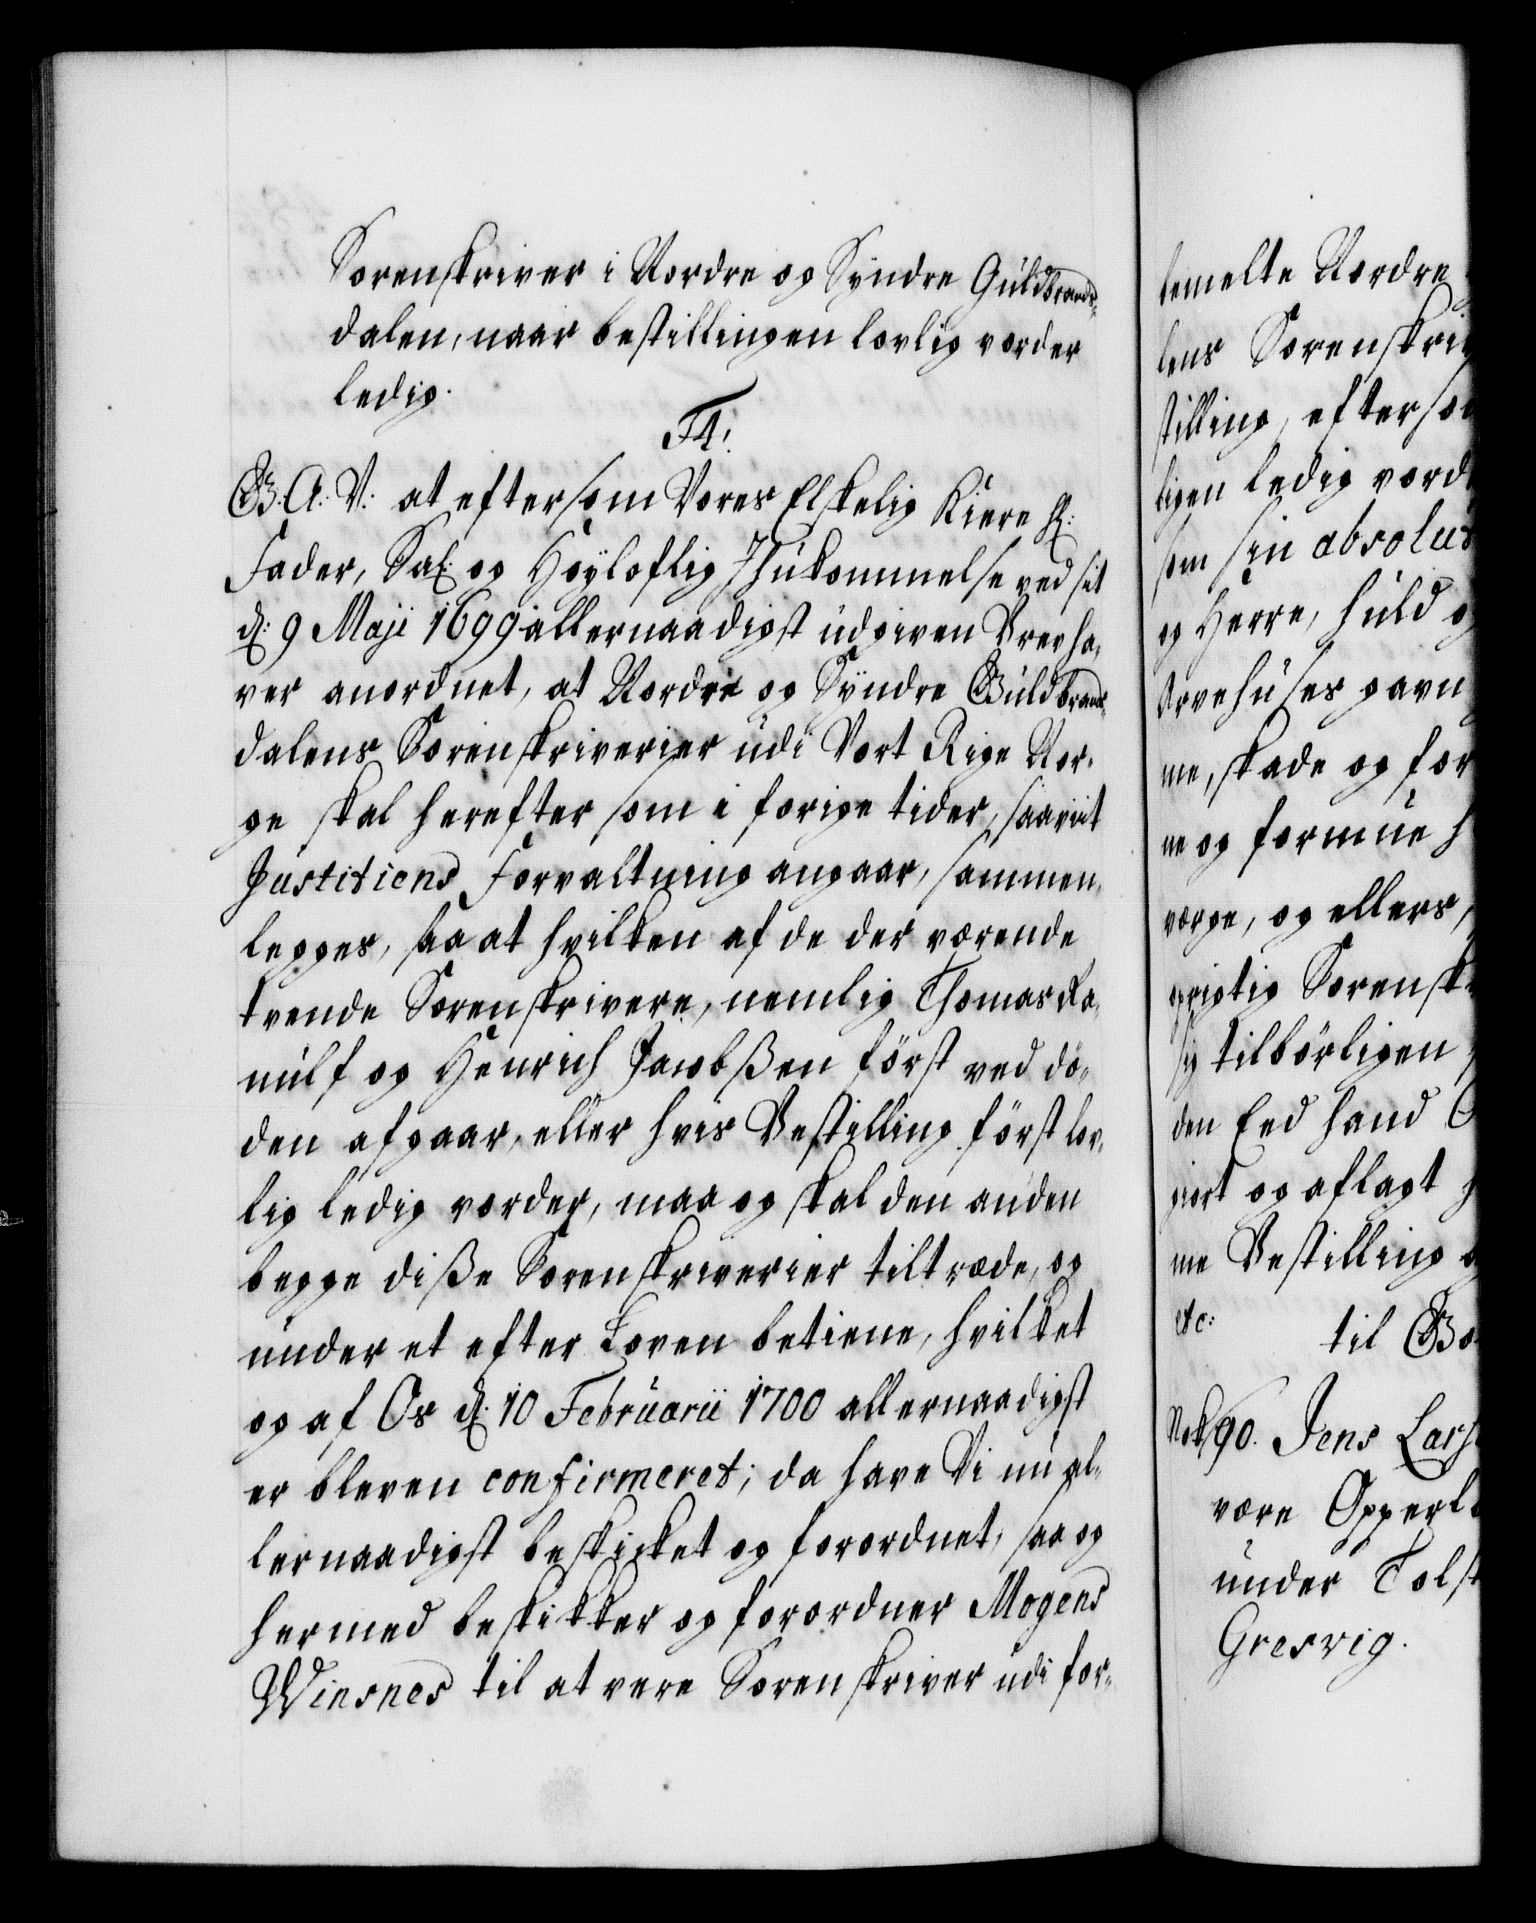 Sorenskriver i Nordre og Syndre Guldbrands-
dalen, naar bestillingen lovlig vorder
ledig.
F4:
G. A. V: at eftersom Vores Elskelig Kiere H:
Fader, Sal: og Høyloflig Ihukommelse ved sit
d: 9 Maji 1699 allernaadigst udgiven Brev ha-
ver anordnet, at Nordre og Syndre Guldbrands-
dalens Sorenskriverier udi Vort Rige Nor-
ge skal herefter som i forige tider, saavit
Justitiens Forvaltning angaar, sammen-
legges, saa at hvilken af de der værende
tvende Sorenskrivere, nemlig Thomas Ra-
nulf og Henrich Jacobßen först ved dö-
den afgaar, eller hvis Bestilling först lov-
lig ledig vorder, maa og skal den anden
begge diße Sorenskriverier tiltræde, og
under et efter Loven betiene, hvilket
og af Os d: 10 Februarii 1700 allernaadigst
er bleven confirmeret; da have Vi nu al-
lernaadigst beskicket og forordnet, saa og
hermed beskikker og forordner Mogens
Winsnes til at vere Sorenskriver udi for-
bemelte Nordre
lens Sorenskri
stilling, efterso
ligen ledig vord
som sin absolut
og Herre, huld o
Arvehuses gavn
me, skade og for
ne og formue h
værge, og ellers,
rigtig Sorensk
sig tilbörligen
den Eed hand
giort og aflagt h
me Bestilling
etc: til Bo
No 90. Jens Lars
være Opperb
under Tols
Gresvig.